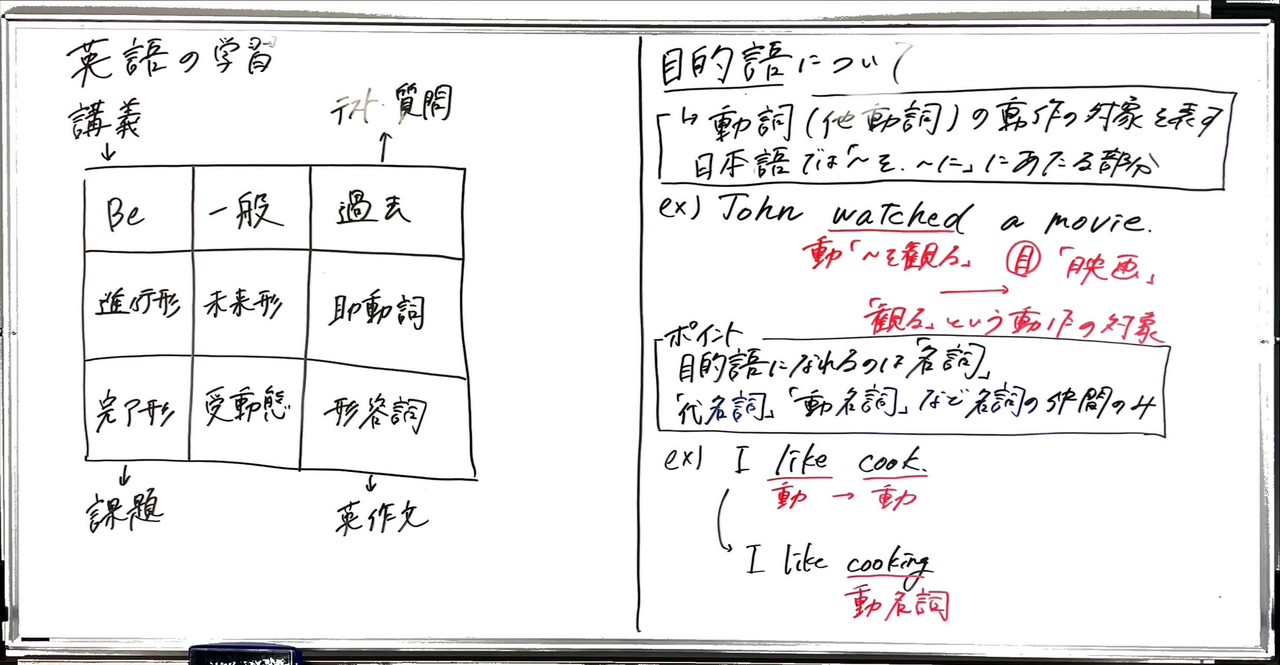 英語の学習
講義
テスト・質問
Be 一般 過去
進行形 未来形 助動詞
完了形 受動態 形容詞
課題
英作文
目的語について
↳ 動詞(他動詞)の動作の対象を表す
日本語では「~を、~に」にあたる部分
ex) John watched a movie.
動「~を観る」 目「映画」
→
「観る」という動作の対象
ポイント
目的語になれるのは「名詞」
「代名詞」「動名詞」など名詞の仲間のみ
ex) I like cook.
動 → 動
I like cooking
動名詞